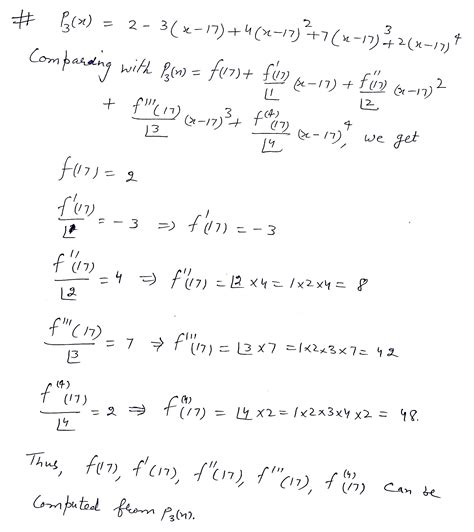 # P₃(x) = 2 - 3(x-17) + 4(x-17)² + 7(x-17)³ + 2(x-17)⁴
Comparing with P₃(x) = f(17) + f'(17)/⌊1 (x-17) + f''(17)/⌊2 (x-17)²
+ f'''(17)/⌊3 (x-17)³ + f⁽⁴⁾(17)/⌊4 (x-17)⁴, we get
f(17) = 2
f'(17)/⌊1 = -3 ⇒ f'(17) = -3
f''(17)/⌊2 = 4 ⇒ f''(17) = ⌊2 × 4 = 1×2×4 = 8
f'''(17)/⌊3 = 7 ⇒ f'''(17) = ⌊3 × 7 = 1×2×3×7 = 42
f⁽⁴⁾(17)/⌊4 = 2 ⇒ f⁽⁴⁾(17) = ⌊4 × 2 = 1×2×3×4×2 = 48.
Thus, f(17), f'(17), f''(17), f'''(17), f⁽⁴⁾(17) can be
computed from P₃(x).